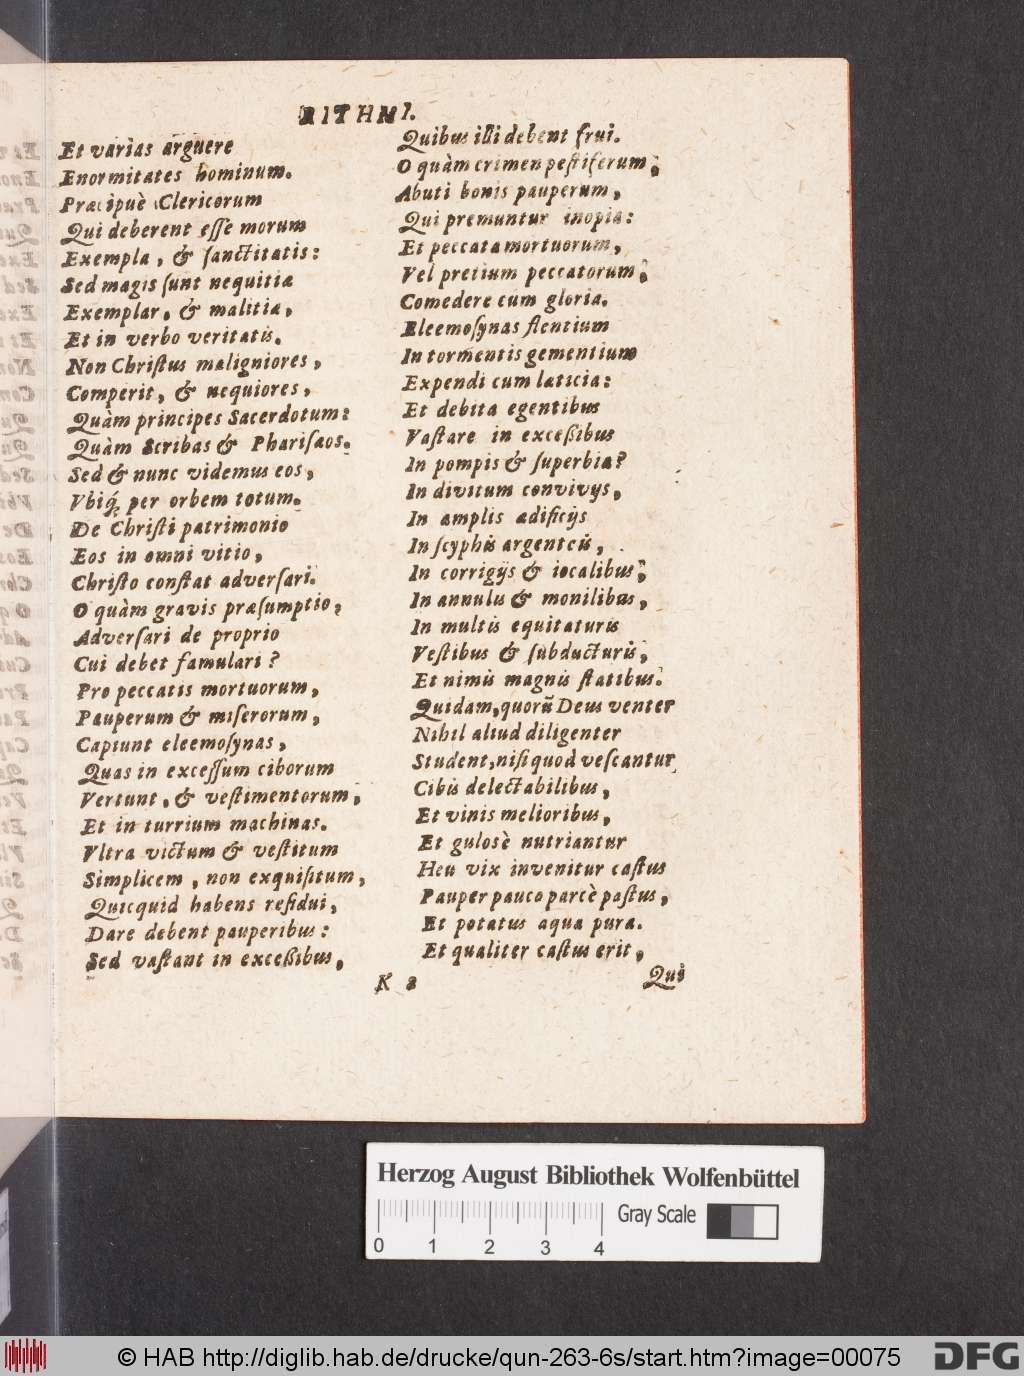 RITHMI.
Et varias arguere
Enormitates hominum.
Præcipuè Clericorum
Qui deberent eſſe morum
Exempla, & ſanctitatis:
Sed magis ſunt nequitiæ
Exemplar, & malitiæ,
Et in verbo veritatis.
Non Chriſtus maligniores,
Comperit, & nequiores,
Quàm principes Sacerdotum:
Quàm Scribas & Phariſæos.
Sed & nunc videmus eos,
Vbiq́; per orbem totum.
De Chriſti patrimonio
Eos in omni vitio,
Chriſto conſtat adverſari.
O quàm gravis præſumptio,
Adverſari de proprio
Cui debet famulari?
Pro peccatis mortuorum,
Pauperum & miſerorum,
Capiunt eleemoſynas,
Quas in exceſſum ciborum
Vertunt, & veſtimentorum,
Et in turrium machinas.
Vltra victum & veſtitum
Simplicem, non exquiſitum,
Quicquid habens reſidui,
Dare debent pauperibus:
Sed vaſtant in exceßibus,
Quibus illi debent frui.
O quàm crimen peſtiferum,
Abuti bonis pauperum,
Qui premuntur inopia:
Et peccata mortuorum,
Vel pretium peccatorum,
Comedere cum gloria.
Eleemoſynas flentium
In tormentis gementium
Expendi cum lætitia:
Et debita egentibus
Vaſtare in exceßibus
In pompis & ſuperbia?
In divitum convivijs,
In amplis ædificijs
In ſcyphis argenteis,
In corrigijs & iocalibus,
In annulis & monilibus,
In multis equitaturis
Veſtibus & ſubducturis,
Et nimis magnis ſtatibus.
Quidam, quorū Deus venter
Nihil aliud diligenter
Student, niſi quod veſcantur
Cibis delectabilibus,
Et vinis melioribus,
Et guloſè nutriantur
Heu vix invenitur caſtus
Pauper pauco parcè paſtus,
Et potatus aqua pura.
Et qualiter caſtus erit,
K 2
Qui
Herzog August Bibliothek Wolfenbüttel
Gray Scale
0 1 2 3 4
© HAB http://diglib.hab.de/drucke/qun-263-6s/start.htm?image=00075
DFG